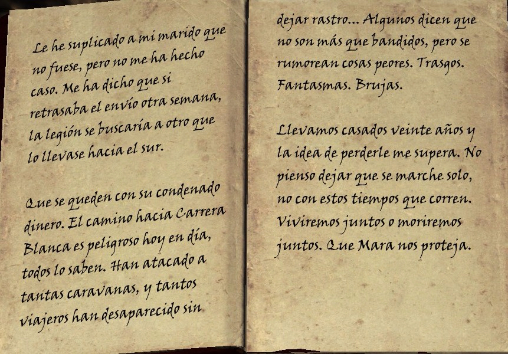 Le he suplicado a mi marido que
no fuese, pero no me ha hecho
caso. Me ha dicho que si
retrasaba el envío otra semana,
la legión se buscaría a otro que
lo llevase hacia el sur.
Que se queden con su condenado
dinero. El camino hacia Carrera
Blanca es peligroso hoy en día,
todos lo saben. Han atacado a
tantas caravanas, y tantos
viajeros han desaparecido sin
dejar rastro... Algunos dicen que
no son más que bandidos, pero se
rumorean cosas peores. Trasgos.
Fantasmas. Brujas.
Llevamos casados veinte años y
la idea de perderle me supera. No
pienso dejar que se marche solo,
no con estos tiempos que corren.
Viviremos juntos o moriremos
juntos. Que Mara nos proteja.